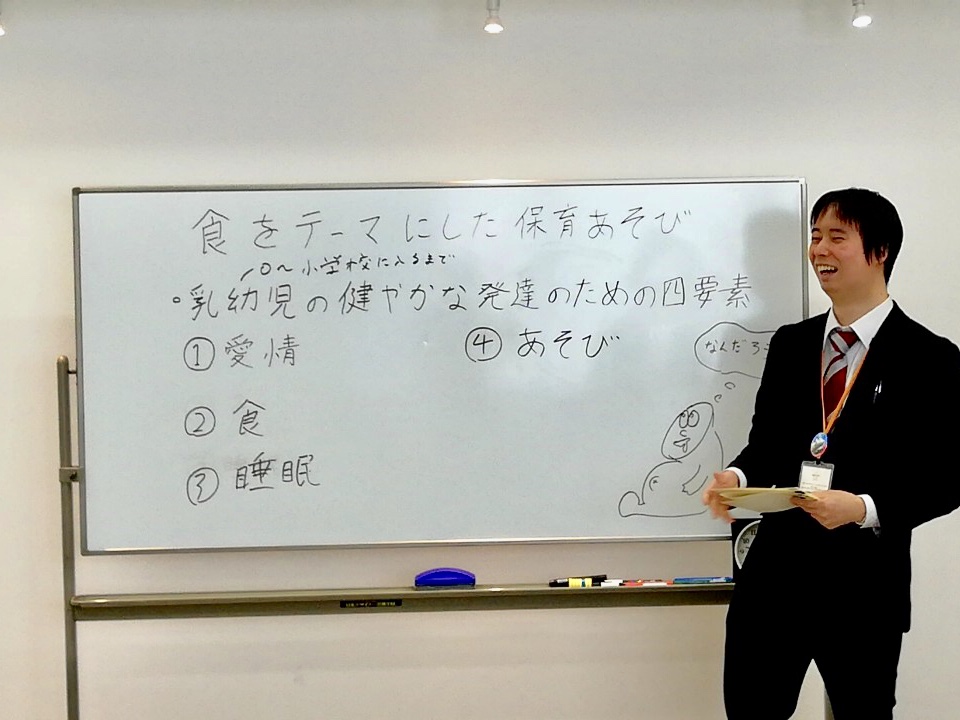 食をテーマにした保育あそび
0～小学校に入るまで
。乳幼児の健やかな発達のための四要素
① 愛情
④ あそび
② 食
③ 睡眠
なんだろ